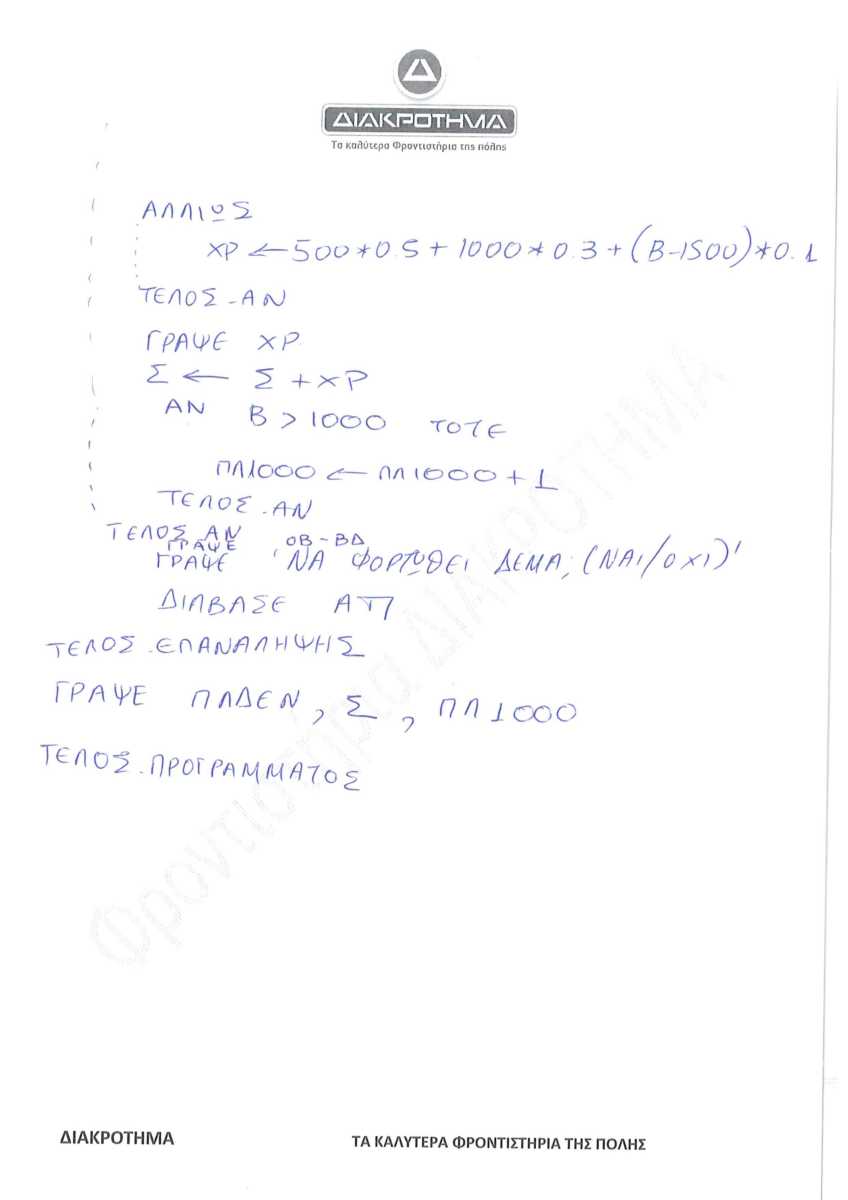 Δ
ΔΙΑΚΡΟΤΗΜΑ
Τα καλύτερα Φροντιστήρια της πόλης
ΑΛΛΙΩΣ
ΧΡ ← 500*0.5 + 1000*0.3 + (Β-1500)*0.1
ΤΕΛΟΣ_ΑΝ
ΓΡΑΨΕ ΧΡ
Σ ← Σ + ΧΡ
ΑΝ Β > 1000 ΤΟΤΕ
ΠΛ1000 ← ΠΛ1000 + 1
ΤΕΛΟΣ_ΑΝ
ΤΕΛΟΣ_ΑΝ
ΓΡΑΨΕ ΟΒ - ΒΔ
ΓΡΑΨΕ 'ΝΑ ΦΟΡΤΩΘΕΙ ΔΕΜΑ; (ΝΑΙ/ΟΧΙ)'
ΔΙΑΒΑΣΕ ΑΠ
ΤΕΛΟΣ_ΕΠΑΝΑΛΗΨΗΣ
ΓΡΑΨΕ ΠΛΔΕΝ, Σ, ΠΛ1000
ΤΕΛΟΣ_ΠΡΟΓΡΑΜΜΑΤΟΣ
Φροντιστήρια ΔΙΑΚΡΟΤΗΜΑ
ΔΙΑΚΡΟΤΗΜΑ ΤΑ ΚΑΛΥΤΕΡΑ ΦΡΟΝΤΙΣΤΗΡΙΑ ΤΗΣ ΠΟΛΗΣ